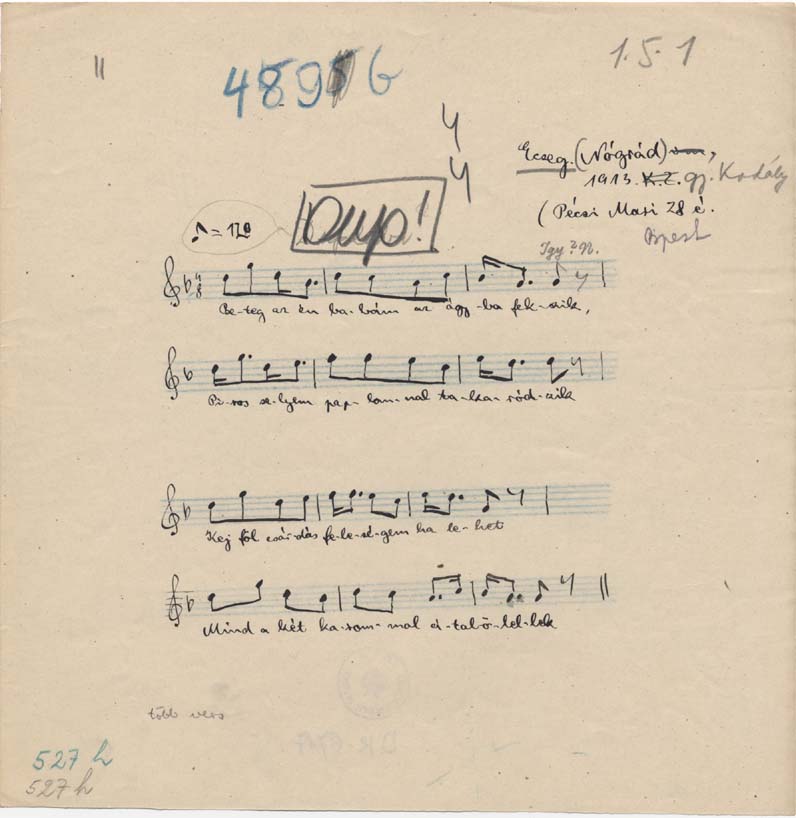 ||
48916
1.5.1
4
4
Ecseg. (Nógrád)
1913. K.Z. gy. Kodály
(Pécsi Mari 28 é.
Bpest
♪ = 120
Dup!
Így? N.
4/8
Be-teg az én ba-bám az ágy-ba fek-szik,
Pi-ros se-lyem pap-lam-mal ta-ka-ród-zik
Kej föl csár-dás fe-le-sé-gem ha le-het
Mind a két ka-rom-mal á-tal-ö-lel-lek
több vers
527 h
527 h